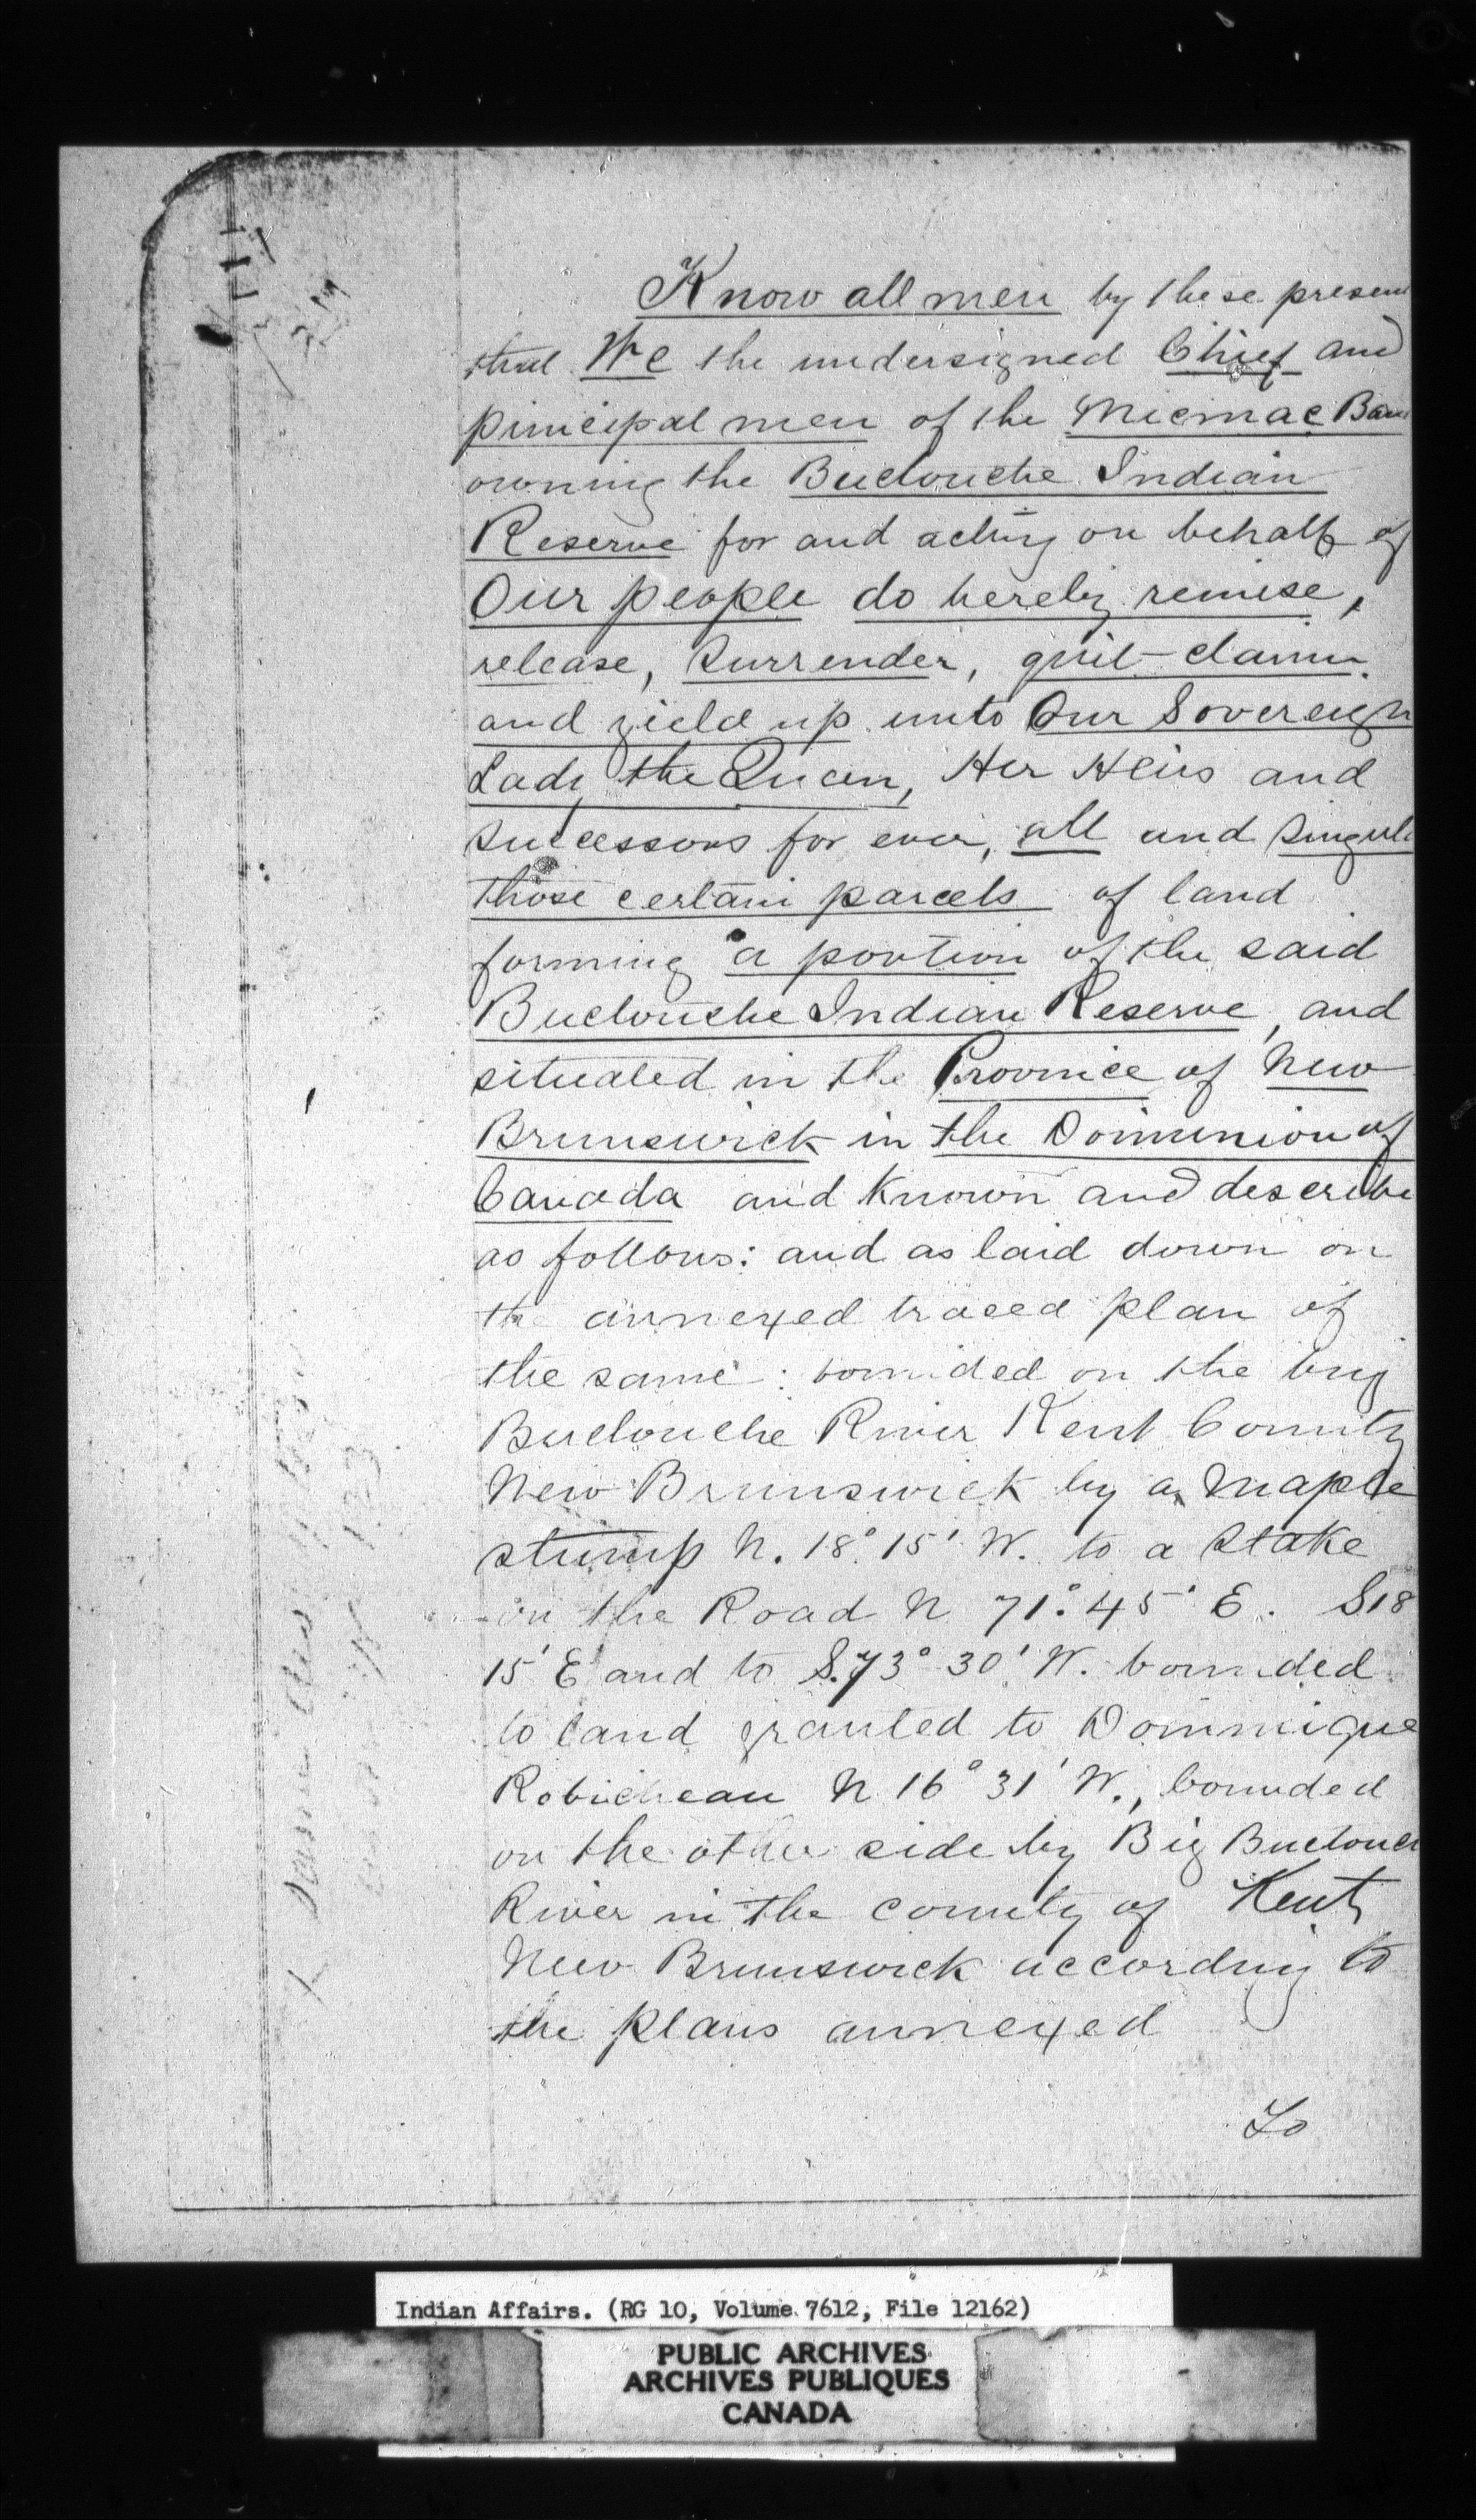 Know all men by these presen
that We the undersigned Chief and
principal men of the Micmac Ban
owning the Buctouche Indian
Reserve for and acting on behalf of
Our people do hereby remise,
release, surrender, quit-claim
and yield up unto Our Sovereign
Lady the Queen, Her Heirs and
successors for ever, all and singul
those certain parcels of land
forming a portion of the said
Buctouche Indian Reserve, and
situated in the Province of New
Brunswick in the Dominion of
Canada and known and describe
as follows: and as laid down on
the annexed traced plan of
the same: bounded on the big
Buctouche River Kent County
New Brunswick by a maple
stump N. 18° 15' W. to a Stake
on the Road N 71° 45' E. S 18
15' E and to S. 73° 30' W. bounded
to land granted to Dominique
Robicheau N 16° 31' W., bounded
on the other side by Big Buctouch
River in the county of Kent
New Brunswick according to
the plans annexed
To
Indian Affairs. (RG 10, Volume 7612, File 12162)
PUBLIC ARCHIVES
ARCHIVES PUBLIQUES
CANADA